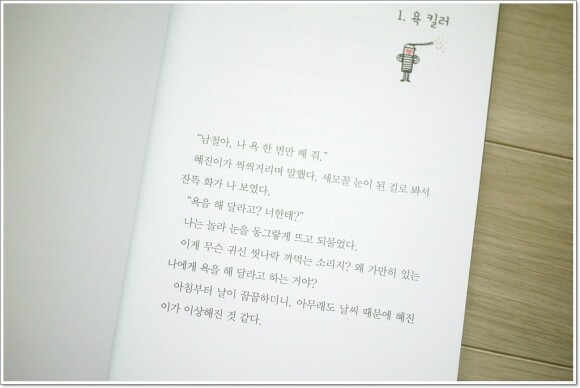 1. 욕 킬러
"남철아, 나 욕 한 번만 해 줘."
혜진이가 씩씩거리며 말했다. 세모꼴 눈이 된 걸로 봐서
잔뜩 화가 나 보였다.
"욕을 해 달라고? 너한테?"
나는 놀라 눈을 동그랗게 뜨고 되물었다.
이게 무슨 귀신 씻나락 까먹는 소리지? 왜 가만히 있는
나에게 욕을 해 달라고 하는 거야?
아침부터 날이 끔끔하더니, 아무래도 날씨 때문에 혜진
이가 이상해진 것 같다.